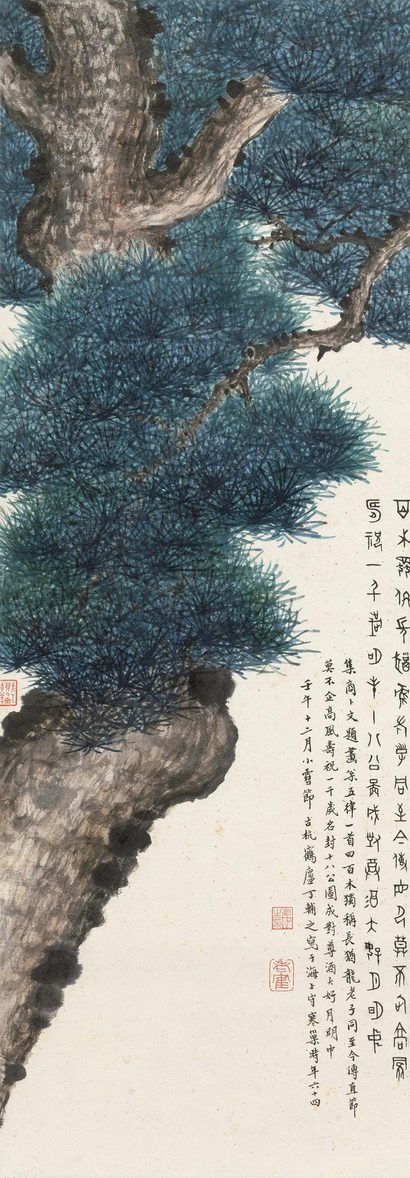 百木獨稱長猶龍老子同至今傳直節莫不企高風
壽祝一千歲名封十八公圖成對尊酒大好月明中
集商卜文題畫松五律一首曰百木獨稱長猶龍老子同至今傳直節
莫不企高風壽祝一千歲名封十八公圖成對尊酒大好月明中
壬午十二月小雪節古杭鶴廬丁輔之寫于海上守寒巢時年六十四